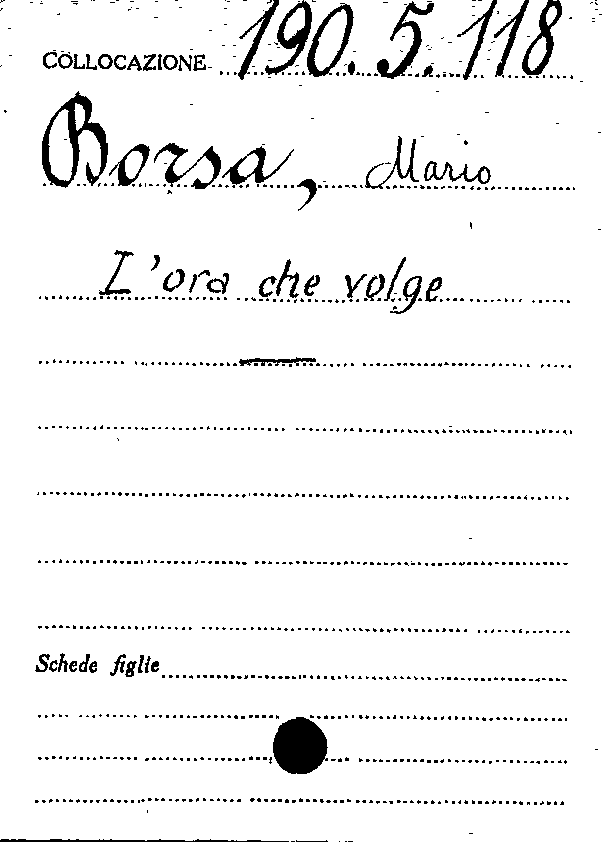 COLLOCAZIONE 190.5.118
Borsa, Mario
L'ora che volge
Schede figlie